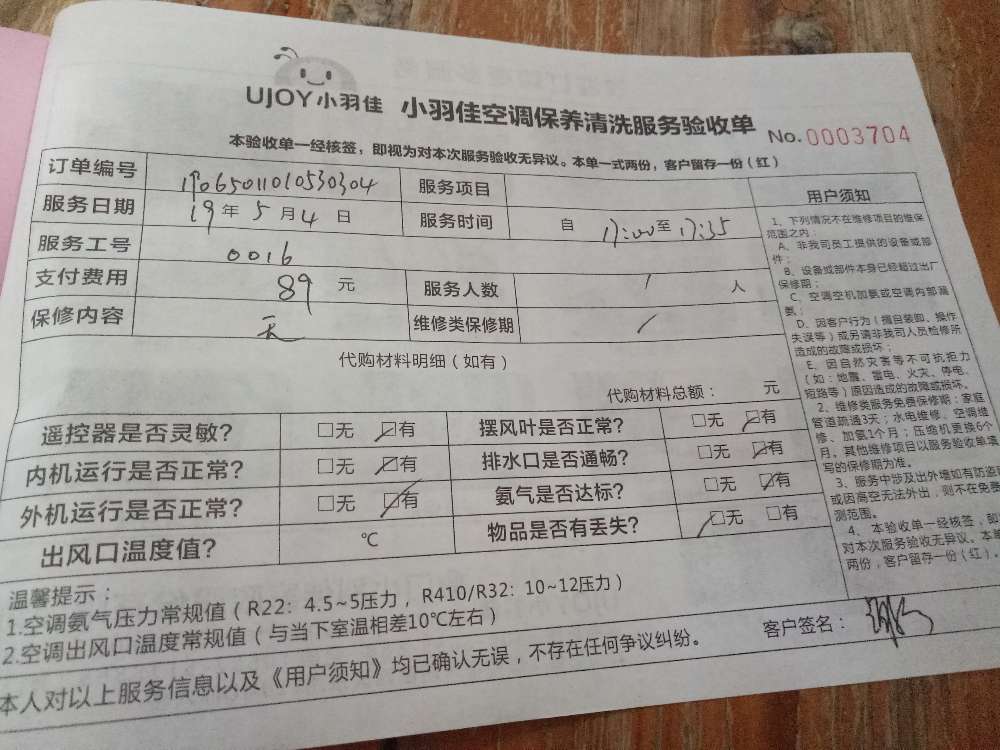 UJOY小羽佳 小羽佳空调保养清洗服务验收单 No.0003704
本验收单一经核签，即视为对本次服务验收无异议。本单一式两份，客户留存一份（红）
订单编号 服务项目
服务日期 19年5月4日 服务时间 自17:00至17:35
服务工号 0016
支付费用 89元 服务人数 1人
保修内容 无 维修类保修期 /
代购材料明细（如有）
代购材料总额： 元
遥控器是否灵敏？ □无 ☑有 摆风叶是否正常？ □无 ☑有
内机运行是否正常？ □无 ☑有 排水口是否通畅？ □无 ☑有
外机运行是否正常？ □无 ☑有 氨气是否达标？ □无 ☑有
出风口温度值？ ℃ 物品是否有丢失？ ☑无 □有
温馨提示：
1.空调氨气压力常规值（R22：4.5~5压力，R410/R32：10~12压力）
2.空调出风口温度常规值（与当下室温相差10℃左右）
客户签名：
本人对以上服务信息以及《用户须知》均已确认无误，不存在任何争议纠纷。
用户须知
1、下列情况不在维修项目的维保
范围之内：
A、非我司员工提供的设备或部
件；
B、设备或部件本身已经超过出厂
保修期；
C、空调空机加氨或空调内部漏
氨；
D、因客户行为（擅自装卸、操作
失误等）或另请非我司人员检修所
造成的故障或损坏；
E、因自然灾害等不可抗拒力
（如：地震、雷电、火灾、停电、
短路等）原因造成的故障或损坏。
2、维修类服务免费保修期：家庭
管道疏通3天；水电维修、空调维
修、加氨1个月；压缩机更换6个
月。其他维修项目以服务验收单填
写的保修期为准。
3、服务中涉及出外墙如有防盗
或因高空无法外出，则不在免费
测范围。
4、本验收单一经核签，即
对本次服务验收无异议。本单
两份，客户留存一份（红）。